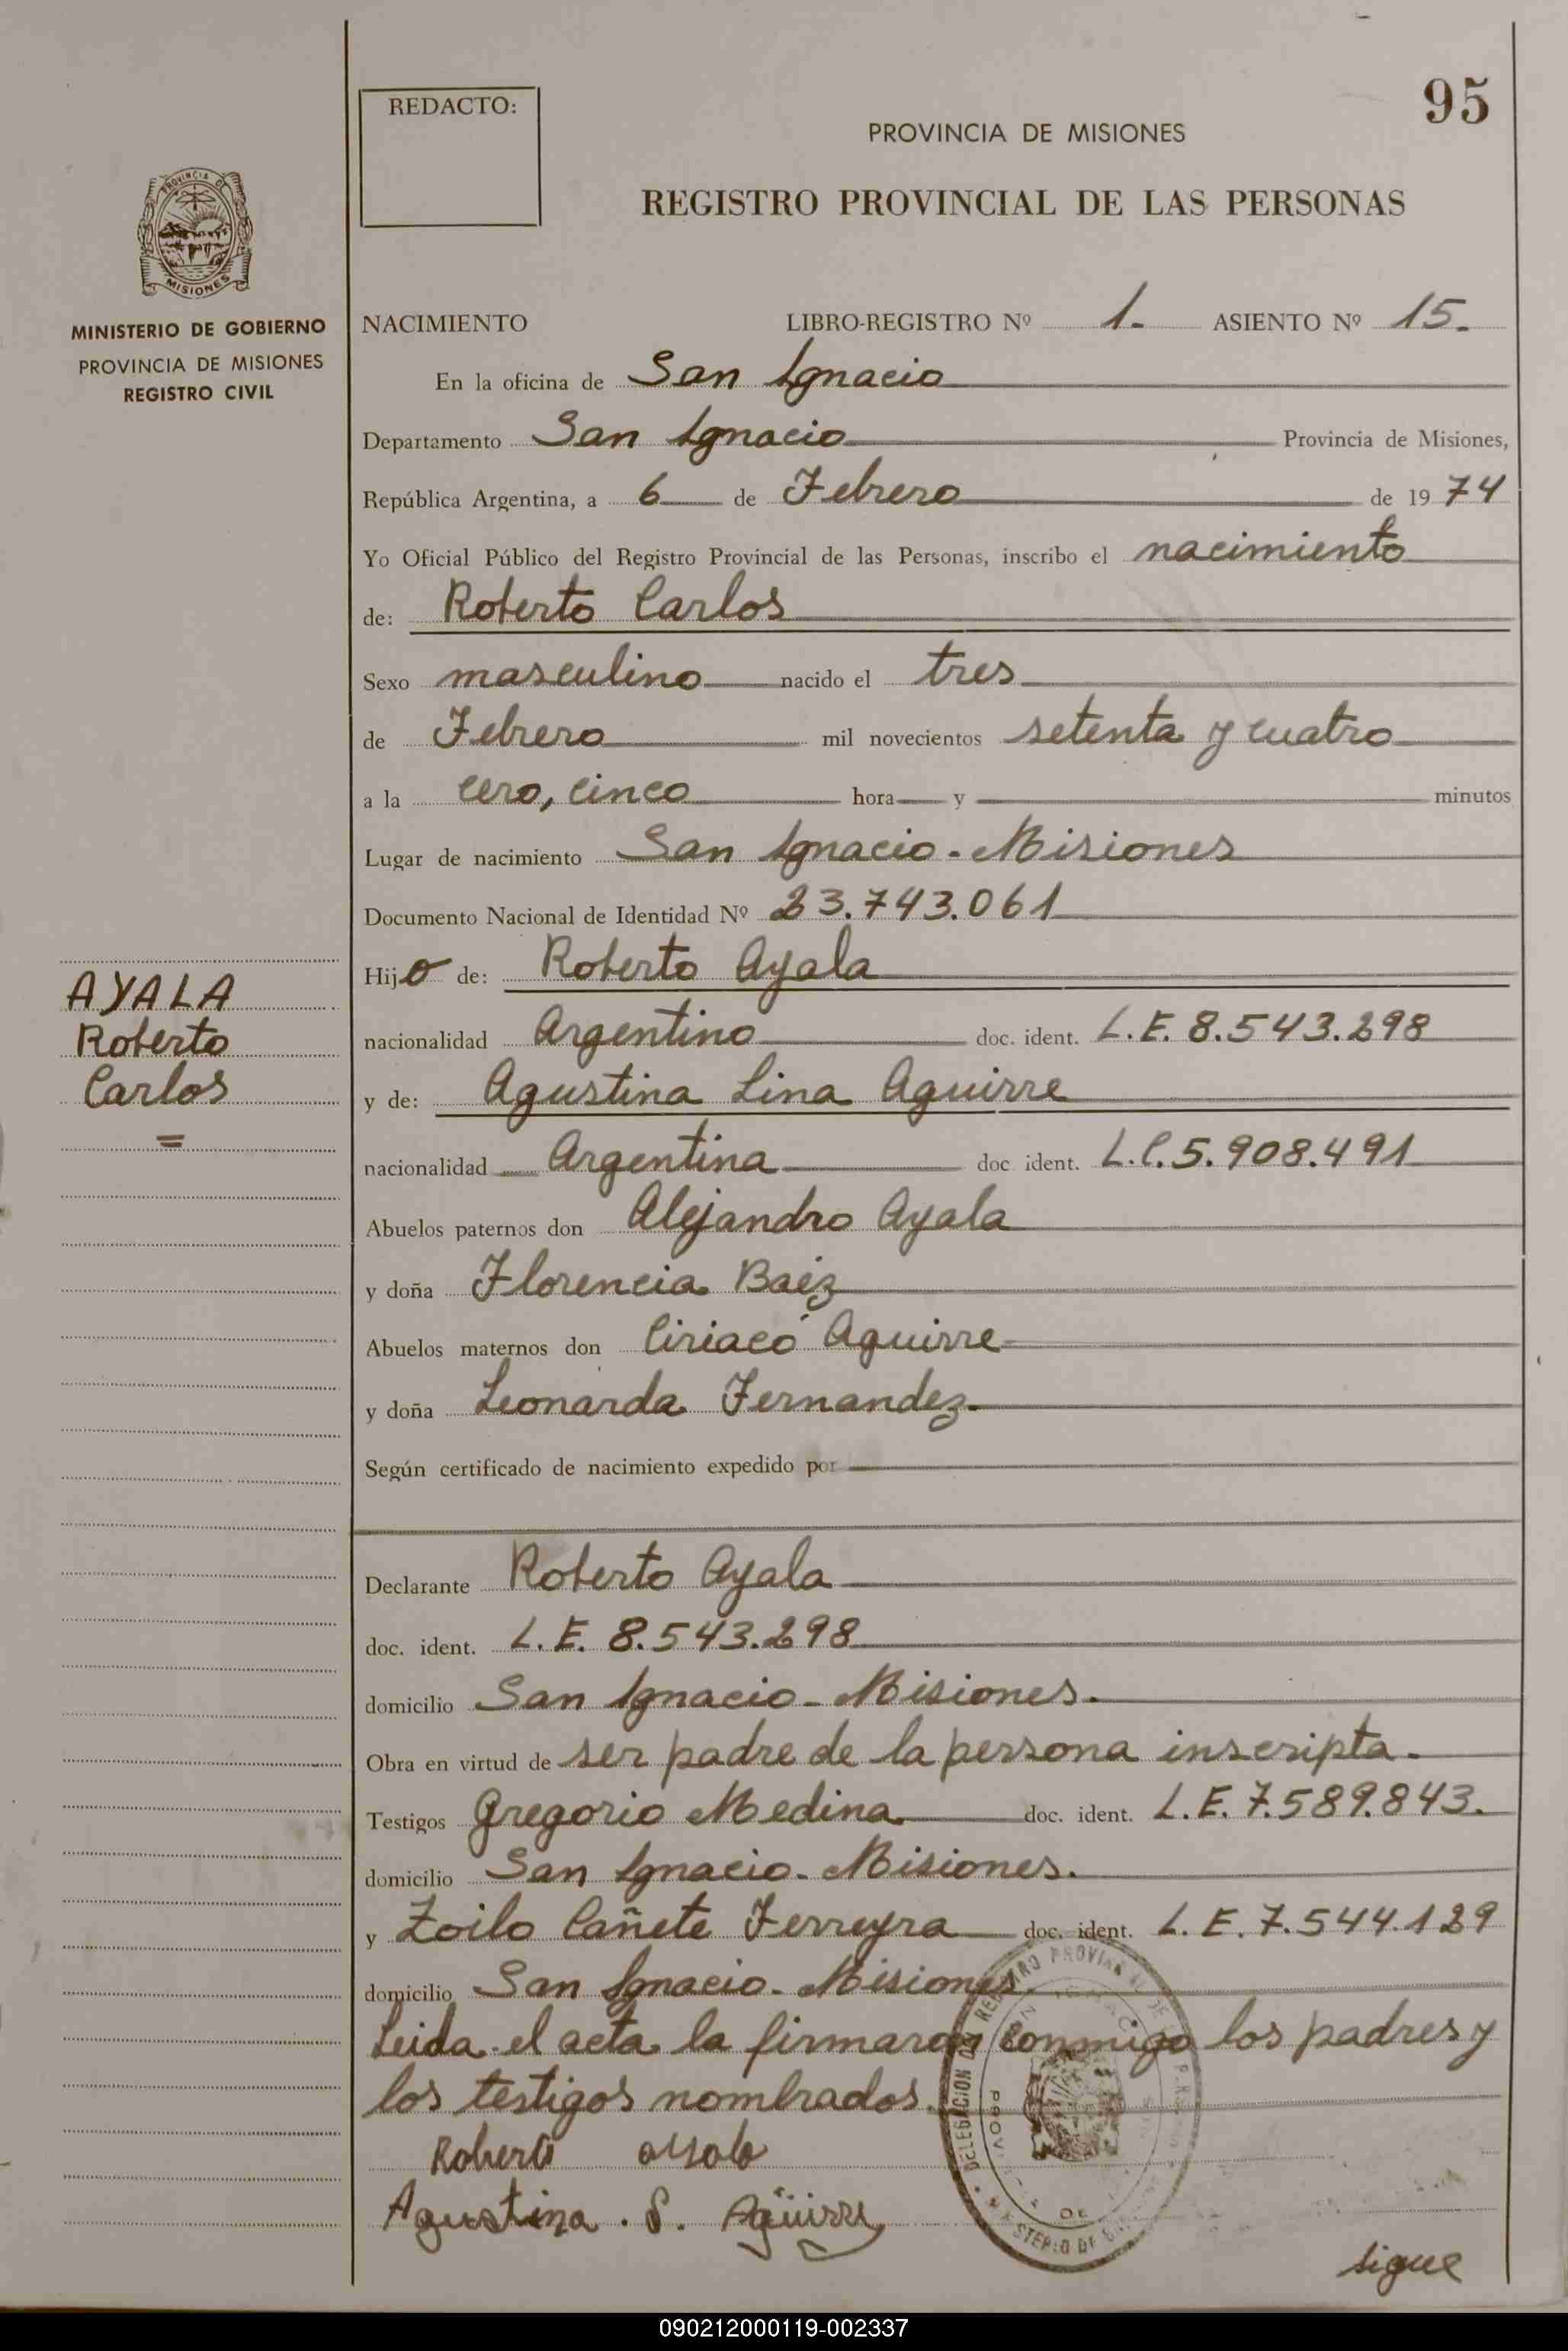 95
REDACTO:
PROVINCIA DE MISIONES
REGISTRO PROVINCIAL DE LAS PERSONAS
PROVINCIA DE
MISIONES
MINISTERIO DE GOBIERNO
PROVINCIA DE MISIONES
REGISTRO CIVIL
NACIMIENTO LIBRO-REGISTRO Nº 1. ASIENTO Nº 15.
En la oficina de San Ignacio
Departamento San Ignacio Provincia de Misiones,
República Argentina, a 6 de Febrero de 1974
Yo Oficial Público del Registro Provincial de las Personas, inscribo el nacimiento
de: Roberto Carlos
Sexo masculino nacido el tres
de Febrero mil novecientos setenta y cuatro
a la cero, cinco hora y minutos
Lugar de nacimiento San Ignacio - Misiones
Documento Nacional de Identidad Nº 23.743.061
Hijo de: Roberto Ayala
nacionalidad Argentino doc. ident. L.E. 8.543.298
y de: Agustina Lina Aguirre
nacionalidad Argentina doc ident. L.C. 5.908.491
Abuelos paternos don Alejandro Ayala
y doña Florencia Baéz
Abuelos maternos don Ciriaco Aguirre
y doña Leonarda Fernandez.
Según certificado de nacimiento expedido por
AYALA
Roberto
Carlos
=
Declarante Roberto Ayala
doc. ident. L.E. 8.543.298
domicilio San Ignacio - Misiones.
Obra en virtud de ser padre de la persona inscripta.
Testigos Gregorio Medina doc. ident. L.E. 7.589.843.
domicilio San Ignacio - Misiones.
y Zoilo Cañete Ferreyra doc. ident. L.E. 7.544.129
domicilio San Ignacio - Misiones.
Leida el acta la firmaron conmigo los padres y
los testigos nombrados.
Roberto ayala
Agustina . L. Agüirre
sigue
090212000119-002337